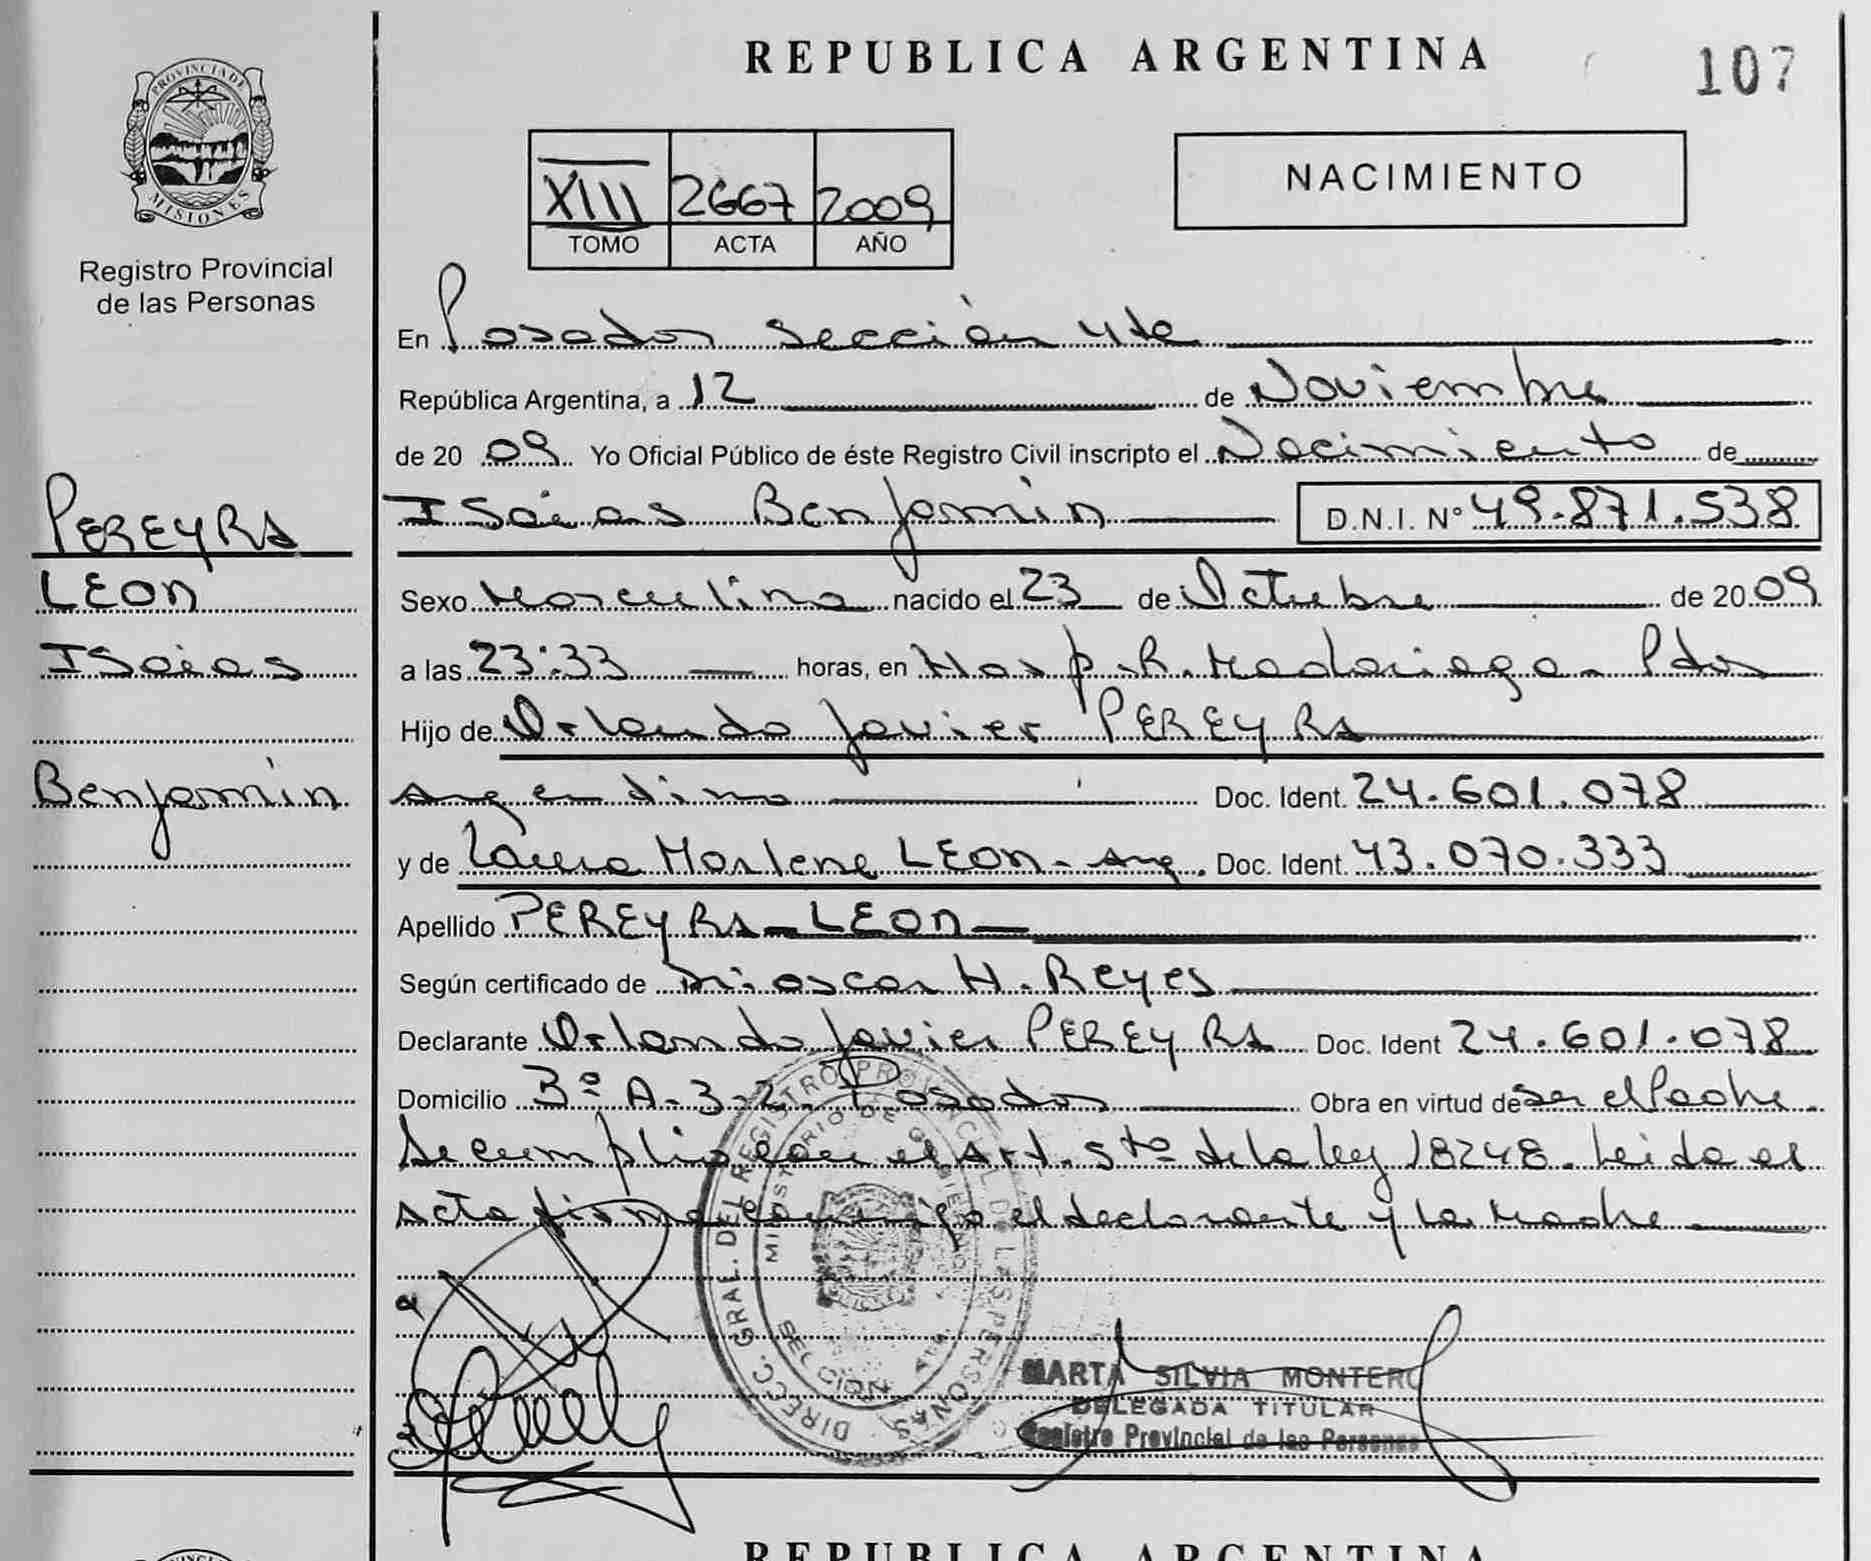 REPUBLICA ARGENTINA
107
PROVINCIA DE
MISIONES
Registro Provincial
de las Personas
XIII 2667 2009
TOMO ACTA AÑO
NACIMIENTO
En Posadas sección 4ta
República Argentina, a 12 de Noviembre
de 20 09 Yo Oficial Público de éste Registro Civil inscripto el Nacimiento de
Isaias Benjamin D.N.I. N° 49.871.538
PEREYRA
LEON
Isaias
Benjamin
Sexo Masculino nacido el 23 de Octubre de 20 09
a las 23:33 horas, en Hosp. R. Madariaga - Pdas
Hijo de Orlando Javier PEREYRA
Argentino Doc. Ident. 24.601.078
y de Laura Marlene LEON - Arg. Doc. Ident. 43.070.333
Apellido PEREYRA - LEON
Según certificado de oscar H. Reyes
Declarante Orlando Javier PEREYRA Doc. Ident 24.601.078
Domicilio 3º A-3-2. Posadas Obra en virtud de ser el Padre
Se cumplio con el Art. 5to de la ley 18248. Leida el
acta firma conmigo el declarante y la madre
DIRECC. GRAL. DEL REGISTRO PROVINCIAL DE LAS PERSONAS
MINISTERIO DE GOBIERNO
SECCION
MARTA SILVIA MONTERO
DELEGADA TITULAR
Registro Provincial de las Personas
REPUBLICA ARGENTINA